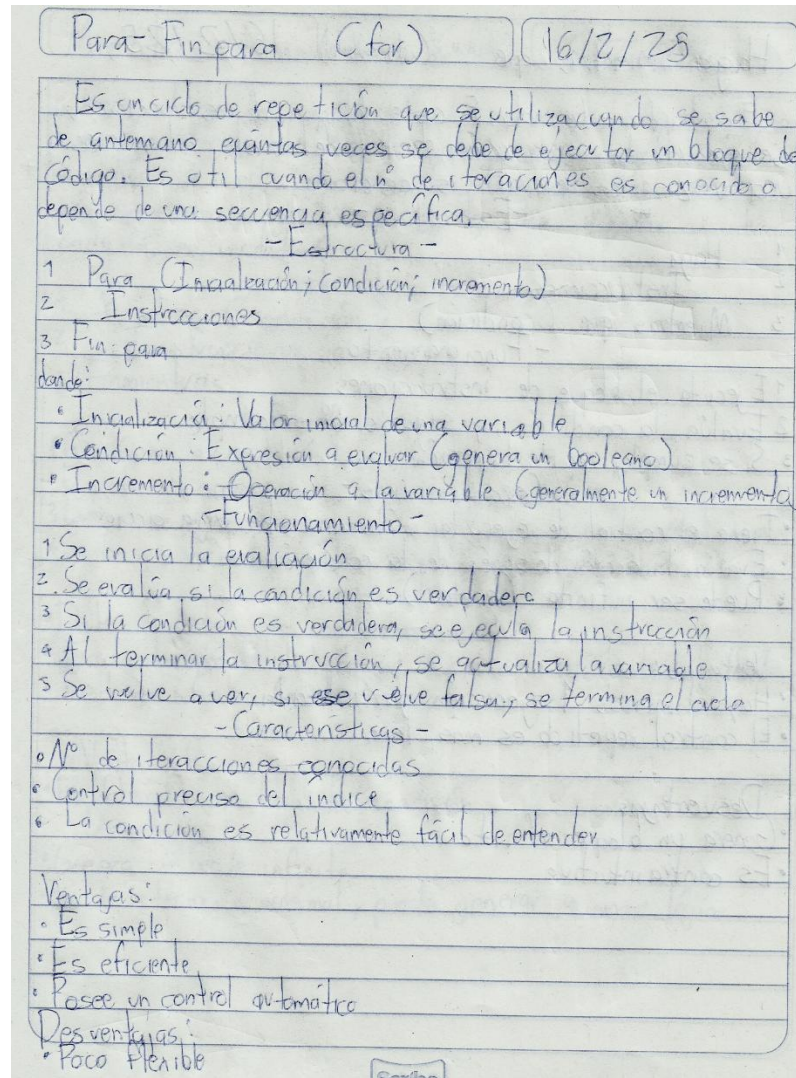 Para-Fin para (for) 16/2/25
Es un ciclo de repetición que se utiliza cuando se sabe
de antemano cuántas veces se debe de ejecutar un bloque de
código. Es útil cuando el nº de iteraciones es conocido o
depende de una secuencia específica.
-Estructura-
1 Para (Inicialización; Condición; incremento)
2 Instrucciones
3 Fin para
donde:
• Inicialización: Valor inicial de una variable
• Condición: Expresión a evaluar (genera un booleano)
• Incremento: Operación a la variable (generalmente un incremento)
-Funcionamiento-
1 Se inicia la evaluación
2. Se evalúa si la condición es verdadera
3 Si la condición es verdadera, se ejecuta la instrucción
4 Al terminar la instrucción, se actualiza la variable
5 Se vuelve a ver, si ese vuelve falsa, se termina el ciclo
-Características-
• Nº de iteracciones conocidas
• Control preciso del índice
• La condición es relativamente fácil de entender
Ventajas:
• Es simple
• Es eficiente
• Posee un control automático
Desventajas:
• Poco flexible